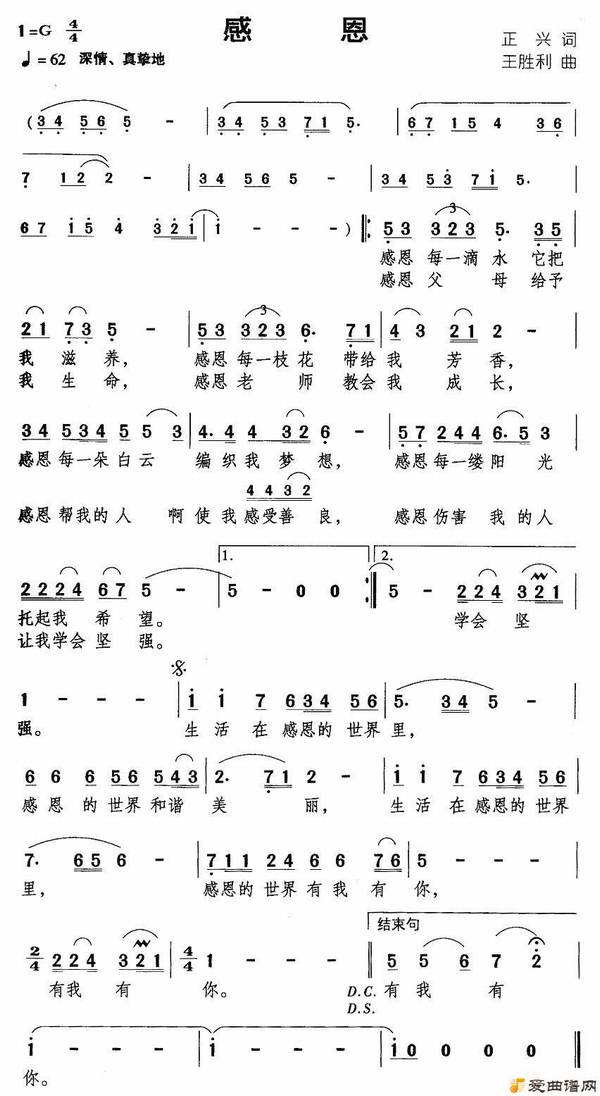 感 恩
1=G 4/4
正 兴 词
♩=62 深情、真挚地
王胜利 曲
(3 4 5 6 5 - | 3 4 5 3 7 1 5. | 6 7 1 5 4 3 6 |
7 1 2 2 - | 3 4 5 6 5 - | 3 4 5 3 7 1 5. |
6 7 1 5 4 3 2 1 | 1 - - ) ‖: 5 3 3 2 3 5. 3 5 |
感恩 每一滴 水 它把
感恩 父 母 给予
2 1 7 3 5 - | 5 3 3 2 3 6. 7 1 | 4 3 2 1 2 - |
我 滋 养, 感恩 每一枝 花 带给 我 芳 香,
我 生 命, 感恩 老 师 教会 我 成 长,
3 4 5 3 4 5 5 3 | 4. 4 4 3 2 6 - | 5 7 2 4 4 6. 5 3 |
感恩 每一朵 白 云 编 织 我 梦 想, 感恩 每一缕 阳 光
4 4 3 2
感恩 帮我的 人 啊 使 我 感受善 良, 感恩 伤害 我 的人
1. 2.
2 2 2 4 6 7 5 - | 5 - 0 0 :‖ 5 - 2 2 4 3 2 1 |
托起我 希 望。 学会 坚
让我学会 坚 强。
1 - - - | 1 1 7 6 3 4 5 6 | 5. 3 4 5 - |
强。 生 活 在 感恩的 世界 里,
6 6 6 5 6 5 4 3 | 2. 7 1 2 - | 1 1 7 6 3 4 5 6 |
感 恩 的 世界 和谐 美 丽, 生 活 在 感恩的 世界
7. 6 5 6 - | 7 1 1 2 4 6 6 7 6 | 5 - - - |
里, 感恩的 世界 有 我 有 你,
结束句
2/4 2 2 4 3 2 1 | 4/4 1 - - ‖ 5 5 6 7 2 |
有我 有 你。 D.C. 有 我 有
D.S.
1 - - - | 1 - - - | 1 0 0 0 0 ‖
你。
爱曲谱网